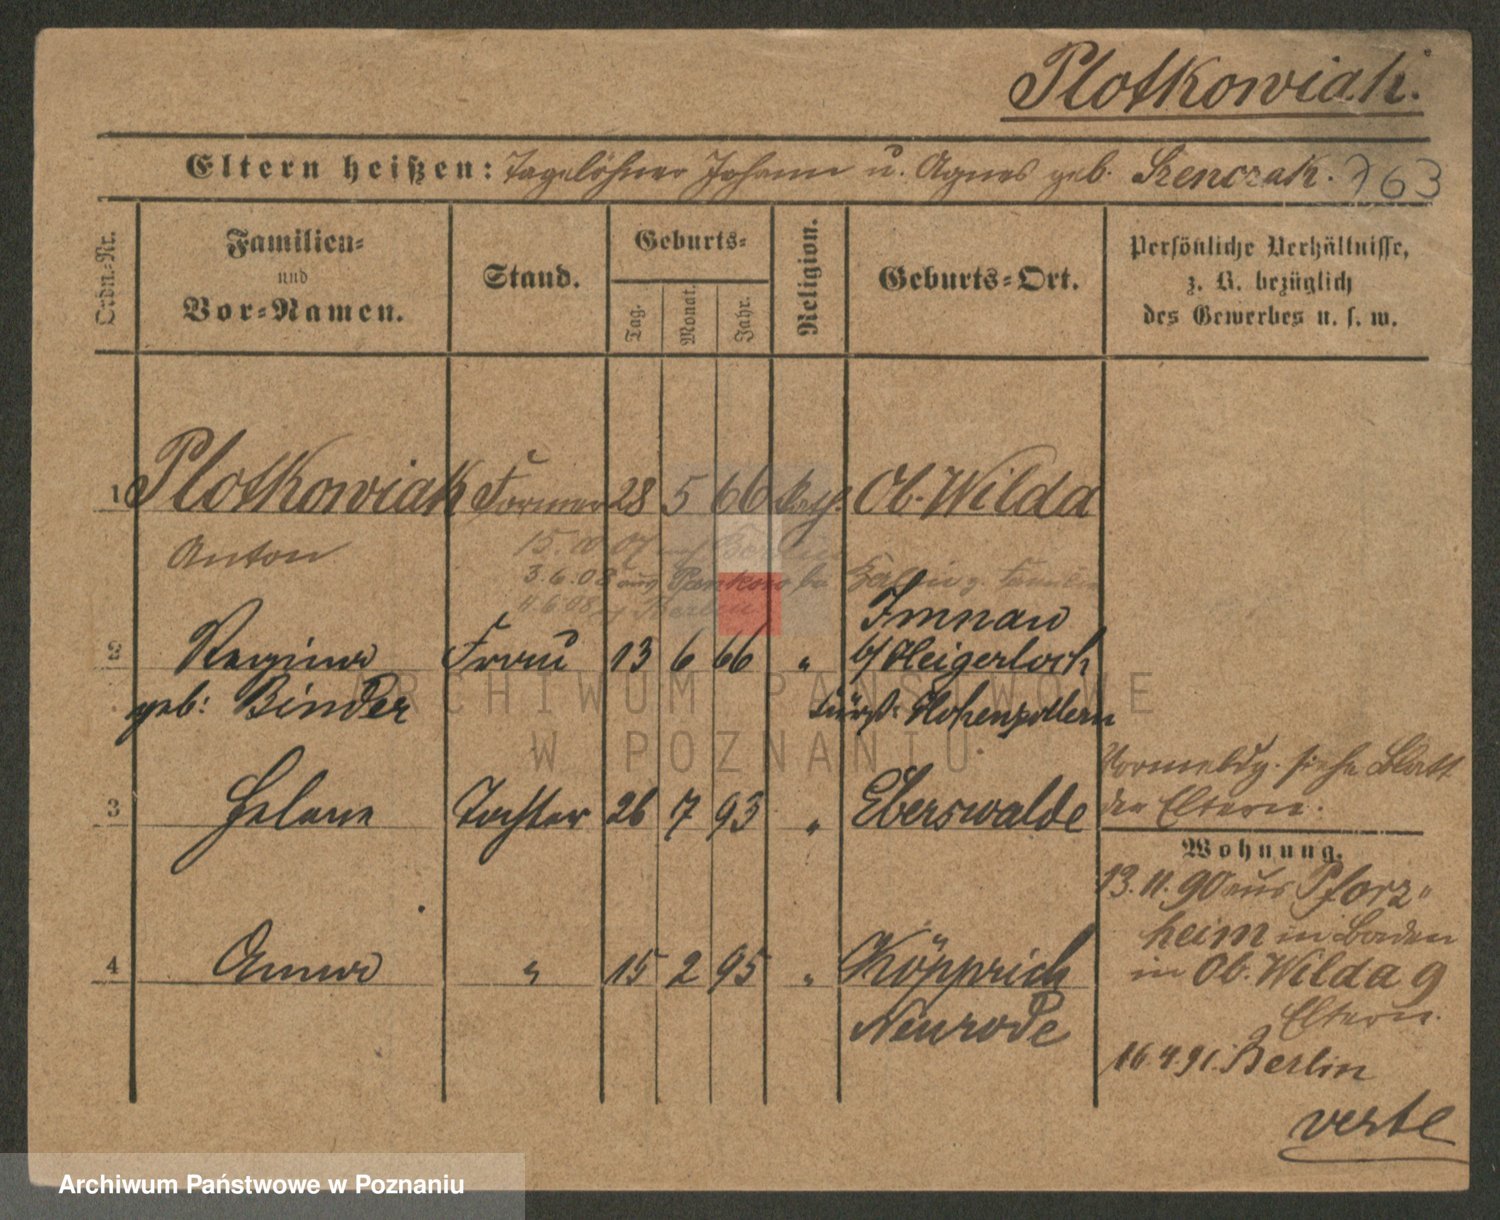 Plotkowiak.
Eltern heißen: Tagelöhner Johann u. Agnes geb. Szenczak. 763
Ordn.-Nr.
Familien-
und
Vor-Namen.
Stand.
Geburts-
Tag.
Monat.
Jahr.
Religion.
Geburts-Ort.
Persönliche Verhältnisse,
z. B. bezüglich
des Gewerbes u. s. w.
1 Plotkowiak Former 28 5 66 kath. Ob. Wilda
Anton
15. 07 Berlin
3.6.08 aus Pankow Familie
4.6.08 Berlin
Imnau
2 Regina Frau 13 6 66 " b/ Heigerloch
geb: Binder Fürst. Hohenzollern
Vormeldg. siehe Blatt
der Eltern.
3 Helene Tochter 26 7 93 " Eberswalde
Wohnung.
13.11.90 aus Pforz-
heim in Baden
4 Anna " 15 2 95 " Köpprich
in Ob. Wilda 9
Neurode
Eltern.
16.4.91. Berlin
verte
ARCHIWUM PAŃSTWOWE
W POZNANIU
Archiwum Państwowe w Poznaniu